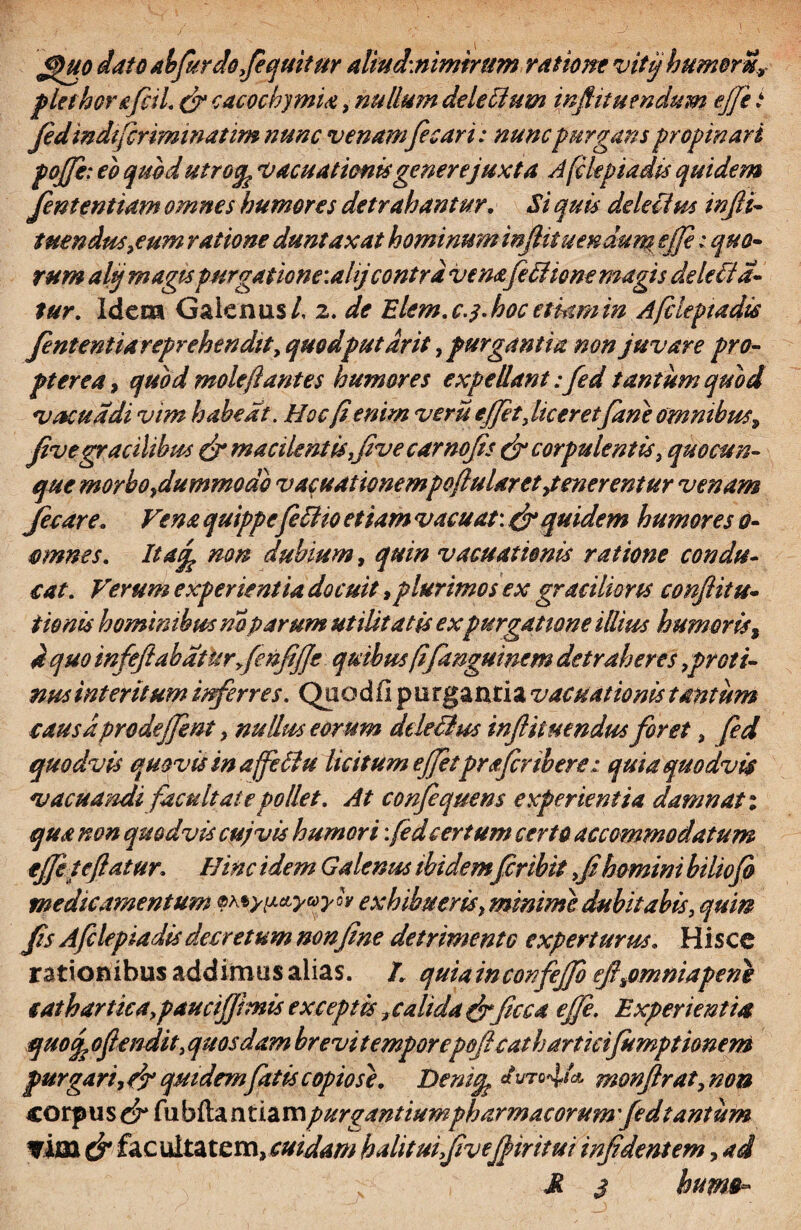 Quo dato absurdo, sequitur aliud: nimirum ratione vitij humorū,
plethoræ scil. & cacochymiæ, nullum delectum instituendum esse:
sed indiscriminatim nunc venam secari: nunc purgans propinari
posse: eò quòd utroq; vacuationis genere juxta Asclepiadis quidem
sententiam omnes humores detrahantur. Si quis delectus insti-
tuendus, eum ratione duntaxat hominum instituendum esse: quo-
rum alij magis purgatione: alij contrà venæ sectione magis delectā-
tur. Idem Galenus l. 2. de Elem. c. 3. hoc etiam in Asclepiadis
sententia reprehendit, quod putârit, purgantia non juvare pro-
pterea, quòd molestantes humores expellant: sed tantùm quòd
vacuādi vim habeāt. Hoc si enim verū esset, liceret sanè omnibus,
sive gracilibus & macilentis, sive carnosis & corpulentis, quocun-
que morbo, dummodò vacuationem postularet, tenerentur venam
secare. Venæ quippe sectio etiam vacuat: & quidem humores o-
omnes. Itaq; non dubium, quin vacuationis ratione condu-
cat. Verum experientia docuit, plurimos ex gracilioris constitu-
tionis hominibus nō parum utilitatis ex purgatione illius humoris,
à quo infestabātur, sensisse quibus si sanguinem detraheres, proti-
nus interitum inferres. Quod si purgantia vacuationis tantùm
causâ prodessent, nullus eorum delectus instituendus foret, sed
quodvis quovis in affectu licitum esset præscribere: quia quodvis
vacuandi facultate pollet. At consequens experientia damnat:
quæ non quodvis cujvis humori: sed certum certo accommodatum
esse testatur. Hinc idem Galenus ibidem scribit, si homini bilioso
medicamentum φλεγμαγωγὸν exhibueris, minimè dubitabis, quin
sis Asclepiadis decretum non sine detrimento experturus. Hisce
rationibus addimus alias. I. quia in confesso est, omnia penè
cathartica, paucissimis exceptis, calida & sicca esse. Experientia
quoq; ostendit, quosdam brevi tempore post cathartici sumptionem
purgari, & quidem satis copiosè. Deniq; ἀυτοψία monstrat, non
corpus & substantiam purgantium pharmacorum: sed tantùm
vim & facultatem, cuidam halitui, sive spiritui insidentem, ad
R 3 humo-